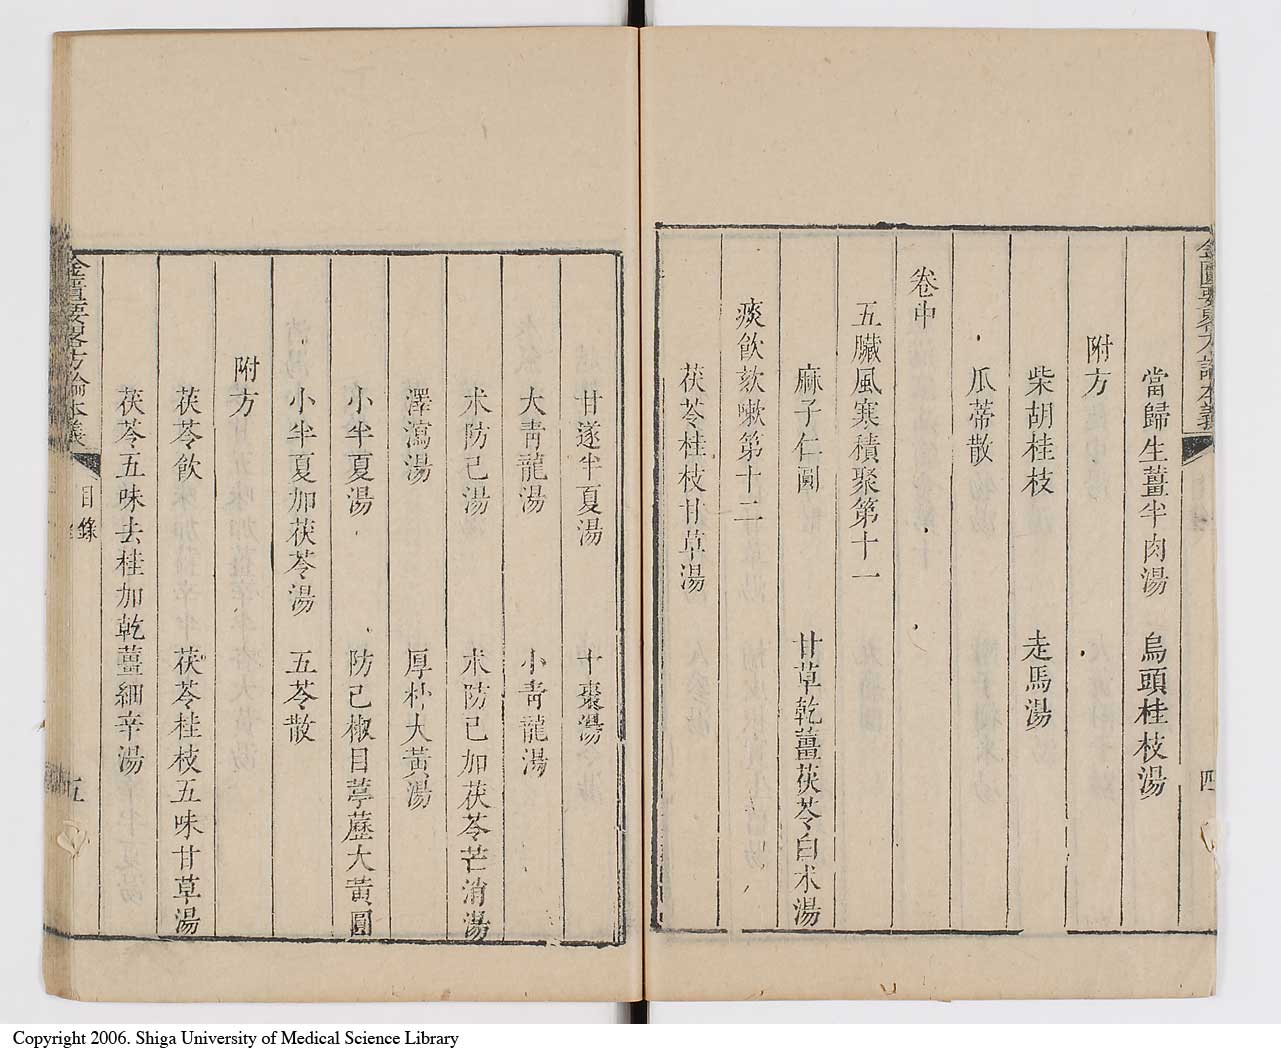 當歸生薑羊肉湯　烏頭桂枝湯
附方
柴胡桂枝　走馬湯
瓜蒂散
卷中
五臟風寒積聚第十一
麻子仁圓　甘草乾薑茯苓白朮湯
痰飮欬嗽第十二
茯苓桂枝甘草湯
四
甘遂半夏湯　十棗湯
大靑龍湯　小靑龍湯
木防己湯　木防己加茯苓芒消湯
澤瀉湯　厚朴大黃湯
小半夏湯　防己椒目葶藶大黃圓
小半夏加茯苓湯　五苓散
附方
茯苓飮　茯苓桂枝五味甘草湯
茯苓五味去桂加乾薑細辛湯
金匱要畧方論本義　目錄　五
Copyright 2006. Shiga University of Medical Science Library